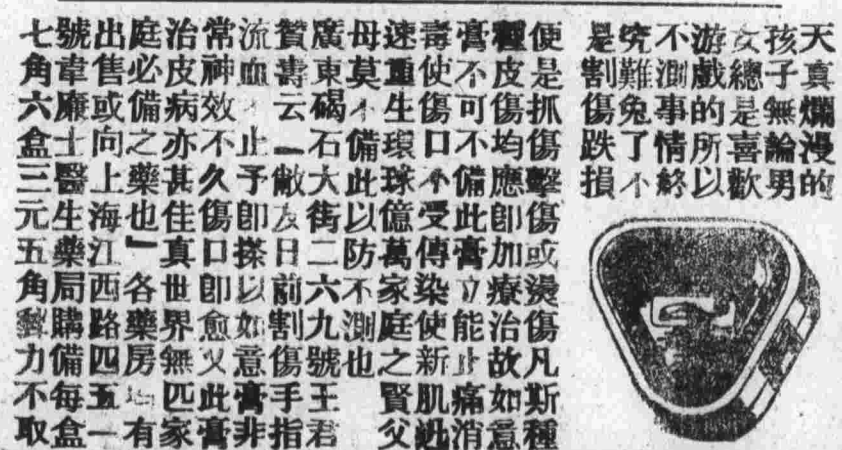 天真爛漫的
孩子無論男
女總是喜歡
游戲的所以
不測事情終
究難免了不
是割傷跌損
便是抓傷擊傷或燙傷凡斯種
種皮傷均應卽加療治故如意
膏不可不備此膏立能止痛消
毒使傷口不受傳染使新肌迅
速重生環球億萬家庭之賢父
母莫不備此以防不測也
廣東碣石大街二六九號王君
贊壽云『敝友日前割傷手指
流血不止予卽搽以如意膏非
常神效不久傷口卽愈又此膏
治皮病亦甚佳真世界無匹家
庭必備之藥也』各藥房均有
出售或向上海江西路四五一
號韋廉士醫生藥局購備每盒
七角六盒三元五角郵力不取